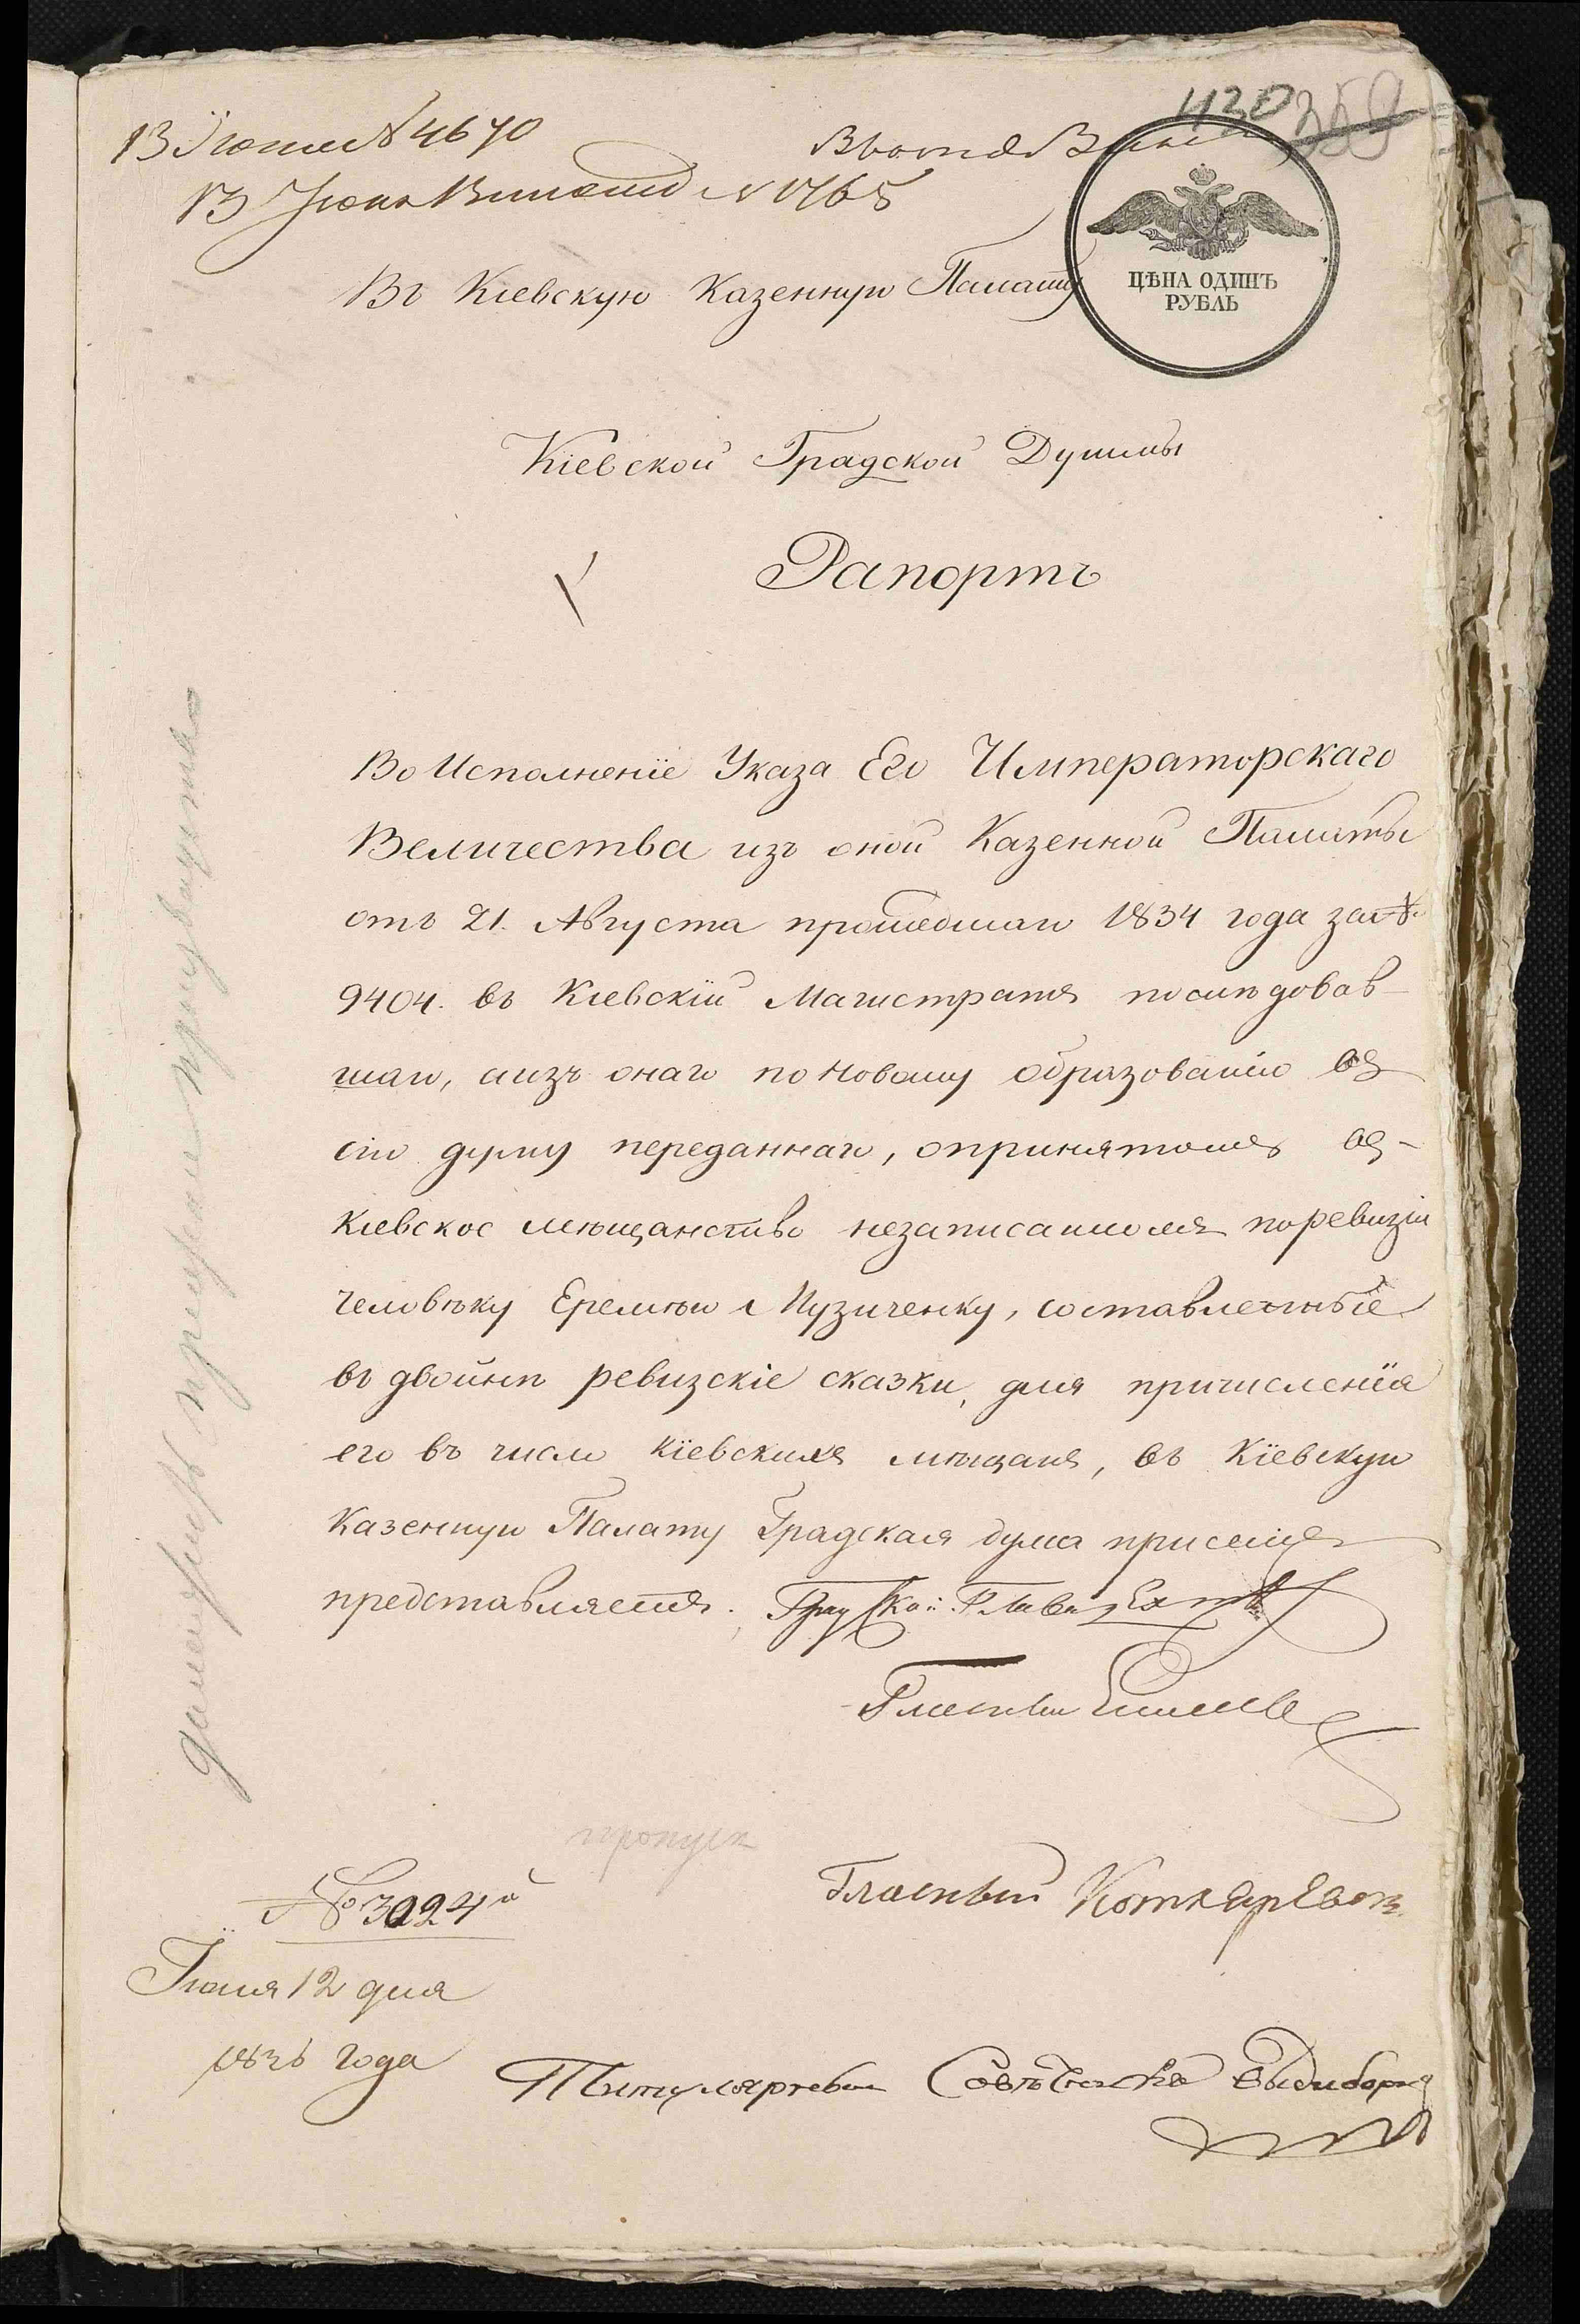 430 359
13 Іюня № 4670
13 Іюня № 1765
Въ Кіевскую Казенную Палату
ЦѢНА ОДИНЪ
РУБЛЬ
Кіевской Градской Думмы
Рапортъ
Во Исполненіе Указа Его Императорскаго
Величества изъ оной Казенной Палаты
отъ 21. Августа прошедшаго 1834 года за №
9404. въ Кіевскій Магистратъ последовав
шаго, а изъ онаго по новому образованію въ
сію думу переданнаго, о принятомъ въ
Кіевское мѣщанство незаписанномъ по ревизіи
человѣку Еремѣю Пузиченку, составленные
въ двойнѣ ревизскіе сказки, для причисленія
его въ число Кіевскихъ мѣщанъ, въ Кіевскую
Казенную Палату Градская дума при семъ
представляетъ. Градской Глава
Гласный
пропуск
Гласный Котляревск
№ 3024й
Іюня 12 дня
1835 года
Титулярный Совѣтникъ